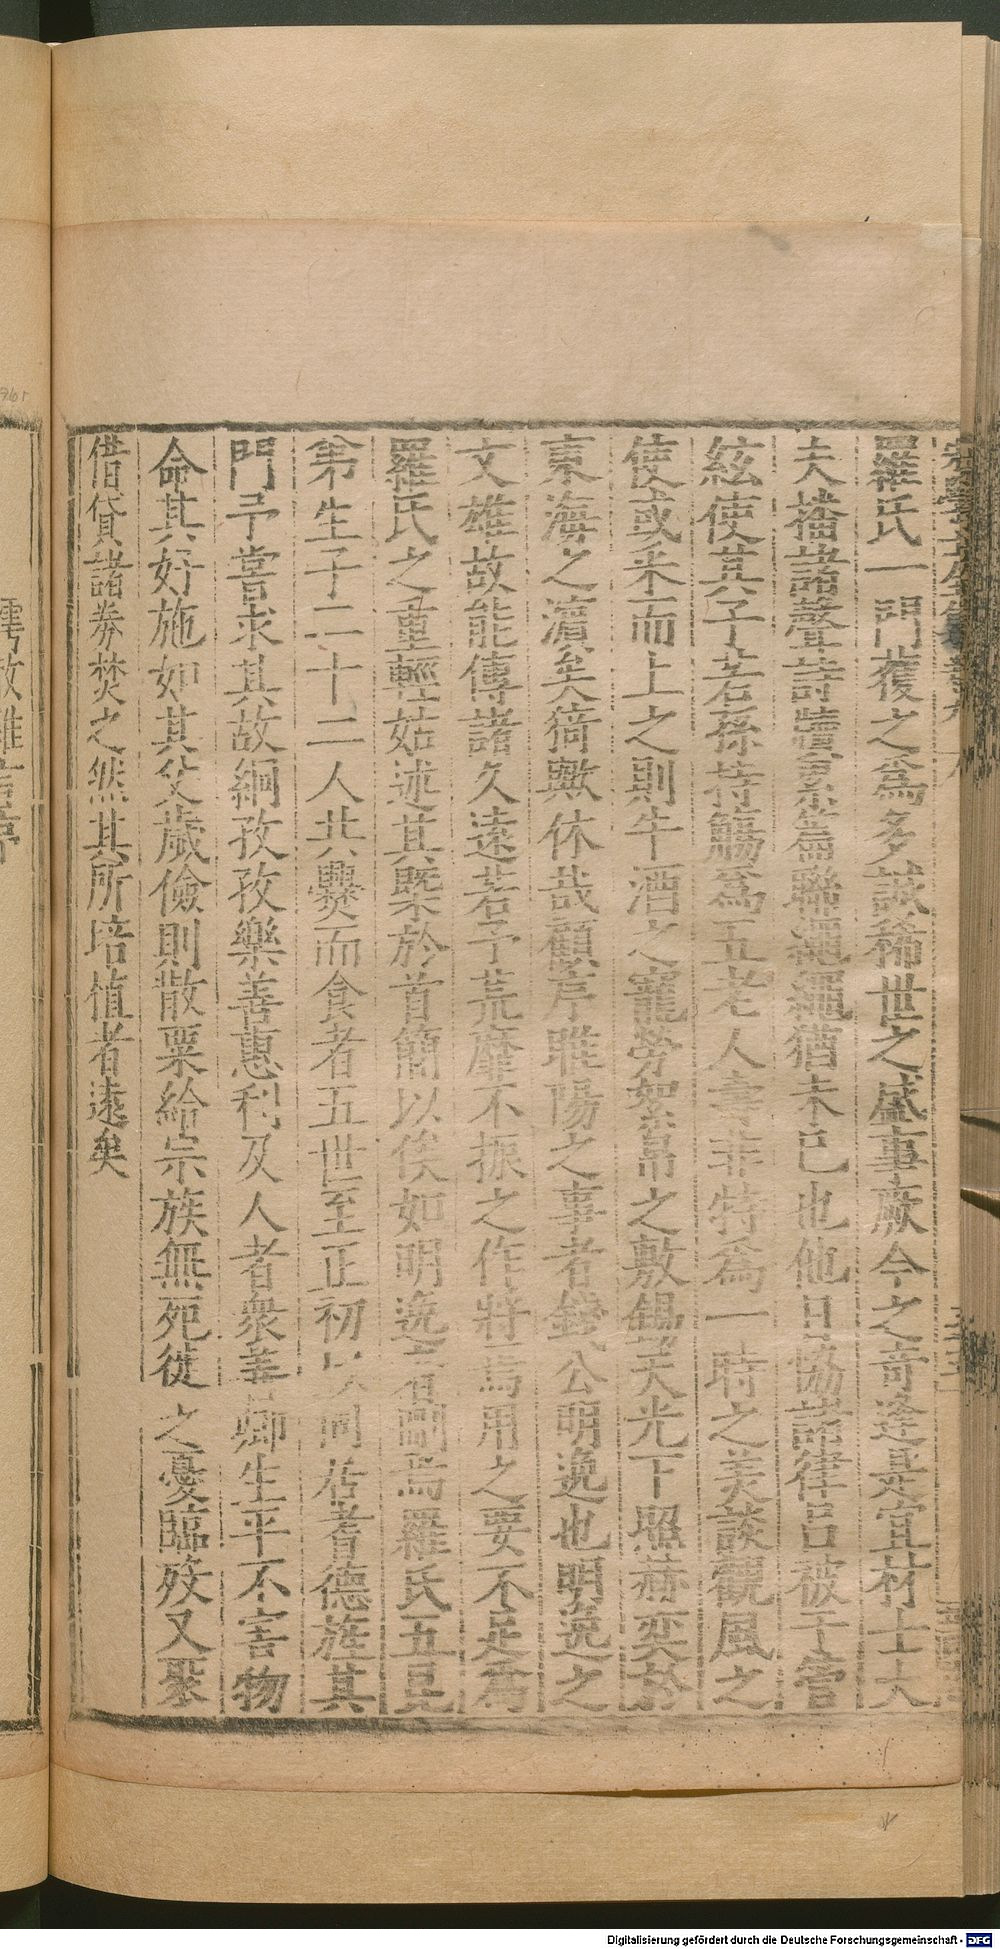 羅氏一門獲之爲多誠稀世之盛事厥今之奇逢是宜材士大
夫播諸聲詩牘累篇聯繩繩猶未已也他日協諸律呂被于管
絃使其子若孫持觴爲五老人壽非特爲一時之美談觀風之
使或采而上之則牛酒之寵勞絮帛之敷錫天光下照赫奕於
東海之濵矣猗歟休哉顧序睢陽之事者錢公明逸也明逸之
文雄故能傳諸久遠若予荒靡不振之作將焉用之要不足爲
羅氏之重輕姑述其槩於首簡以俟如明逸者嗣焉羅氏五昆
弟生子二十二人共爨而食者五世至正初以同居耆德旌其
門予嘗求其故綱孜孜樂善惠利及人者衆美卿生平不害物
命其好施如其父歲儉則散粟給宗族無死徙之憂臨歿又聚
借貸諸券焚之然其所培植者遠矣